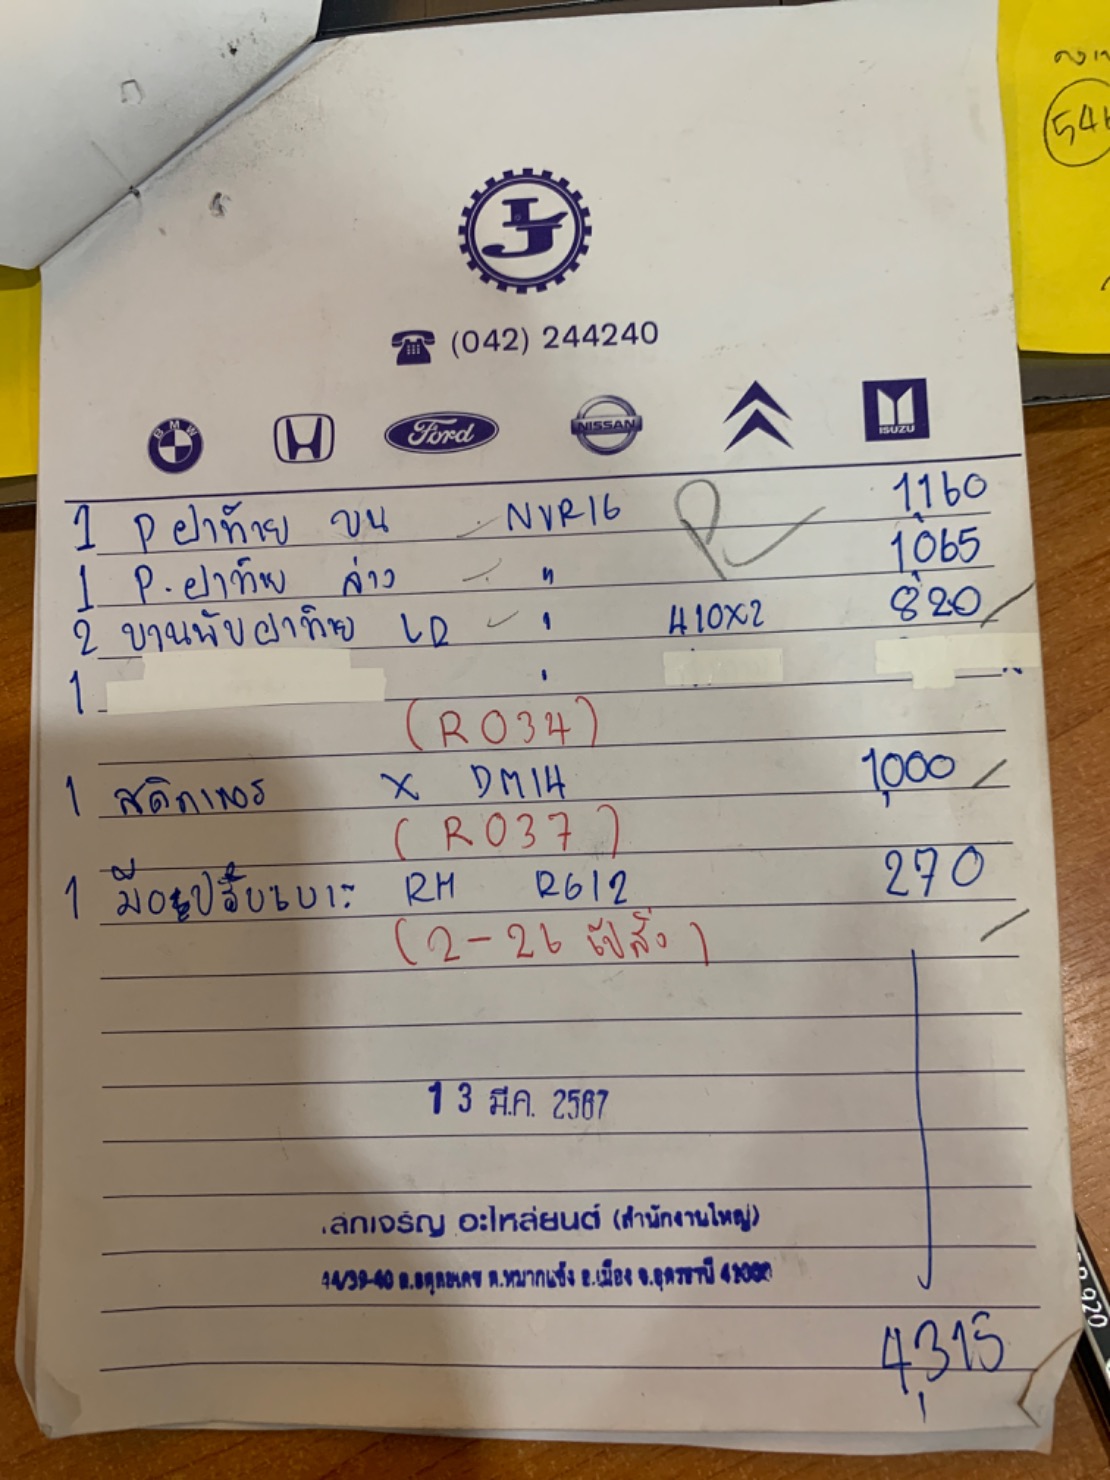 (042) 244240
BMW
H
Ford
NISSAN
ISUZU
1 P ฝาท้าย บน NVR16 1,160
1 P.ฝาท้าย ล่าง " 1,065
2 บานพับฝาท้าย LR " 410x2 820
1 "
(R034)
1 สติกเกอร X DM14 1,000
(R037)
1 มือปรับเบาะ RH R612 270
(2-26 ใบสั่ง)
13 มี.ค. 2567
ลกเจริญ อะไหล่ยนต์ (สำนักงานใหญ่)
44/39-40 ต.หมากแข้ง อ.เมือง จ.อุดรธานี 41000
4,315
546
920